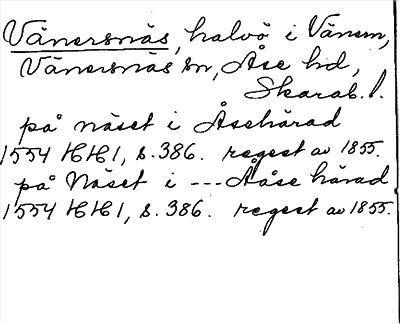 Vänersnäs, halvö i Vänern,
Vänersnäs sn, Åse hd,
Skarab. l.
på näset i Åsehärad
1554 HH 1, s. 386. regest av 1855.
på Näset i --- Aåse härad
1554 HH 1, s. 386. regest av 1855.